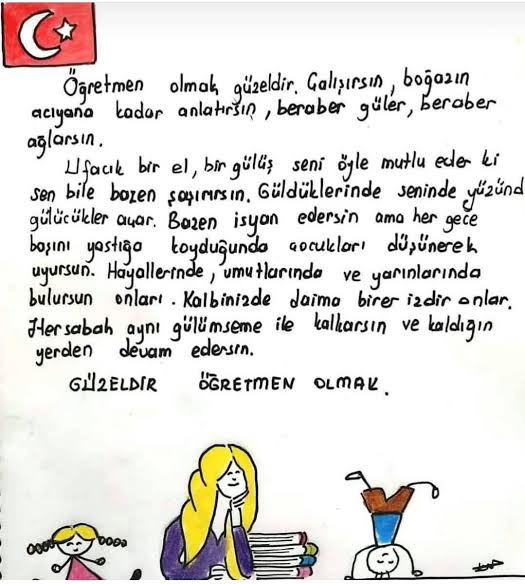 Öğretmen olmak güzeldir. Çalışırsın, boğazın
acıyana kadar anlatırsın, beraber güler, beraber
ağlarsın.
Ufacık bir el, bir gülüş seni öyle mutlu eder ki
sen bile bazen şaşırırsın. Güldüklerinde seninde yüzünd
gülücükler açar. Bazen isyan edersin ama her gece
başını yastığa koyduğunda çocukları düşünerek
uyursun. Hayallerinde, umutlarında ve yarınlarında
bulursun onları. Kalbinizde daima birer izdir onlar.
Her sabah aynı gülümseme ile kalkarsın ve kaldığın
yerden devam edersin.
GÜZELDİR ÖĞRETMEN OLMAK.